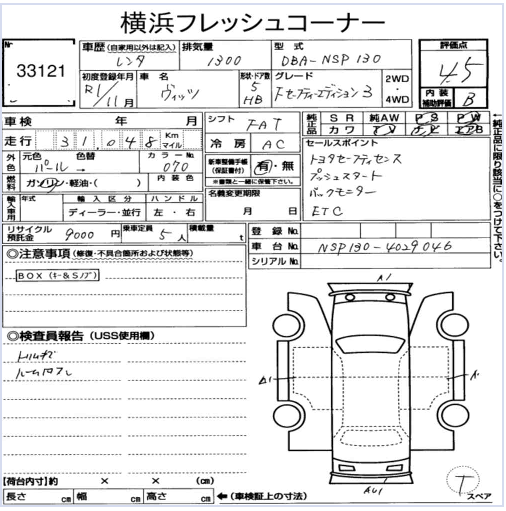 横浜フレッシュコーナー
№ 33121
車歴 (自家用以外は記入) レンタ
排気量 1300
型式 DBA-NSP130
評価点 4.5
初度登録年月 R1/11月
車名 ヴィッツ
形状・ドア数 5 HB
グレード F セーフティーエディション 3
2WD ・ 4WD
内装補助評価 B
車検 年 月
シフト FAT
純正品 SR 純AW PS PW
カワ TV ナビ エアB
走行 31,048 Km マイル
冷房 AC
セールスポイント
トヨタセーフティセンス
プッシュスタート
バックモニター
ETC
外色 元色 パール 色替 →
カラー№ 070
新車整備手帳 (保証書付) 有・無
※書類と一緒に保管下さい。
燃料 ガソリン・軽油・( )
内装色
名義変更期限 月 日
輸入車用 年式 輸入区分 ディーラー・並行
ハンドル 左・右
リサイクル預託金 9000 円
乗車定員 5 人
積載量 t
登録№
車台№ NSP130-4029046
シリアル№
←純正品に限り該当に○をつけて下さい。
◎注意事項 (修復・不具合箇所および状態等)
BOX (キー&Sノブ)
◎検査員報告 (USS使用欄)
トリムキズ
A1
A1
【荷台内寸】約 × × (cm)
長さ cm 幅 cm 高さ cm ←(車検証上の寸法)
T スペア